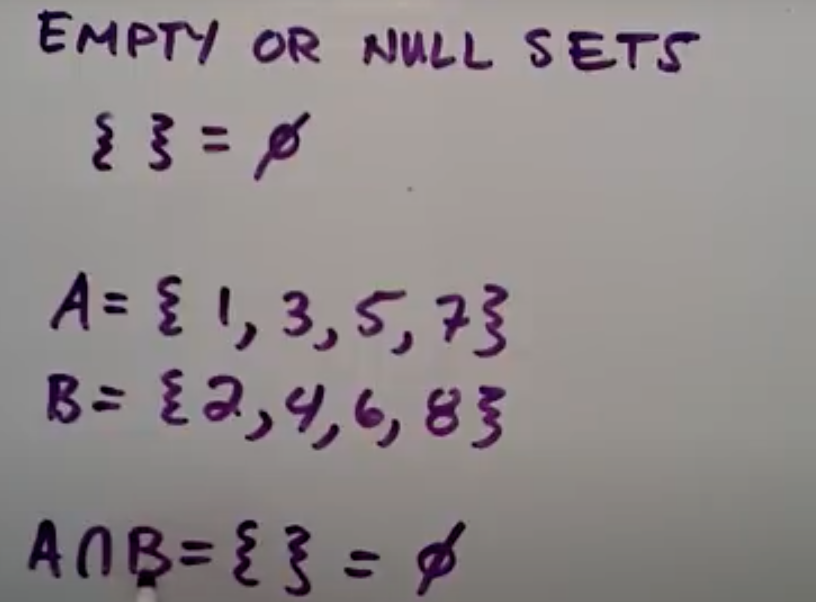 EMPTY OR NULL SETS
{ } = ∅
A = { 1, 3, 5, 7}
B = {2, 4, 6, 8}
A∩B = { } = ∅